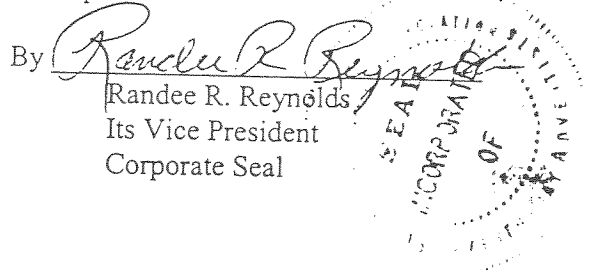 By Randee R Reynolds
Randee R. Reynolds
Its Vice President
Corporate Seal
SEAL
INCORPORATED
OF